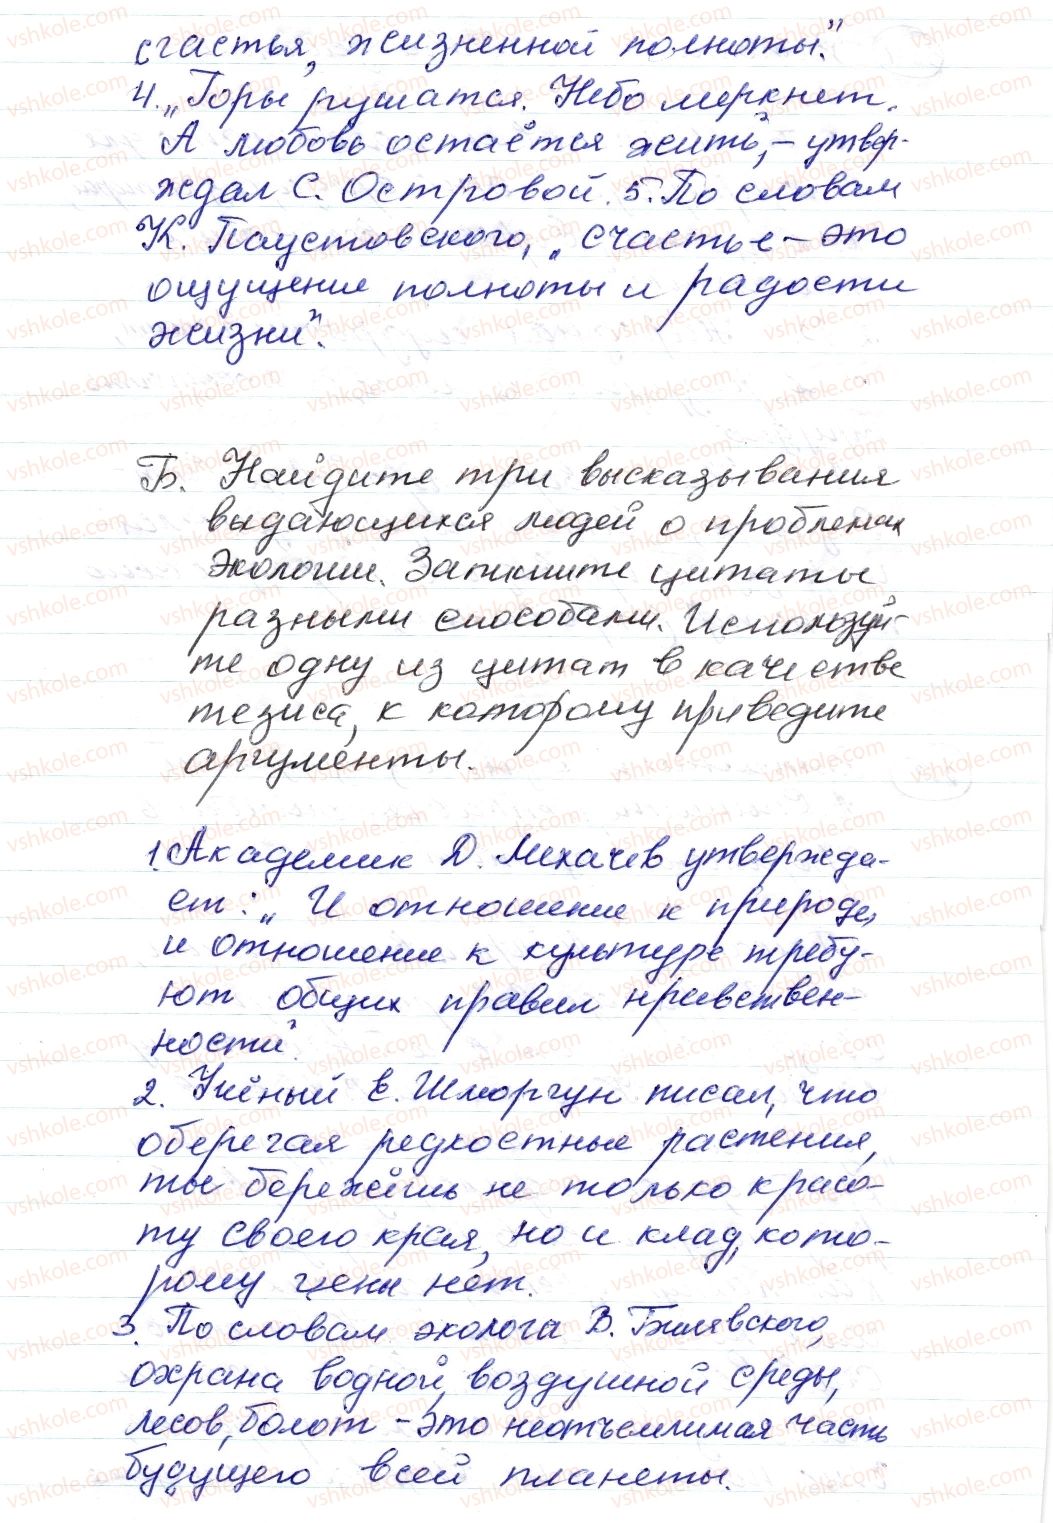 счастья, жизненной полноты".
4. „Горы рушатся. Небо меркнет.
А любовь остаётся жить", – утвер-
ждал С. Островой. 5. По словам
К. Паустовского, „счастье – это
ощущение полноты и радости
жизни".
Б. Найдите три высказывания
выдающихся людей о проблемах
экологии. Запишите цитаты
разными способами. Используй-
те одну из цитат в качестве
тезиса, к которому приведите
аргументы.
1. Академик Д. Лихачев утвержда-
ет: „И отношение к природе,
и отношение к культуре требу-
ют общих правил нравствен-
ности".
2. Учёный Е. Шморгун писал, что
оберегая редкостные растения,
ты бережёшь не только красо-
ту своего края, но и клад, кото-
рому цены нет.
3. По словам эколога В. Билявского,
охрана водной, воздушной среды,
лесов, болот – это неотъемлимая часть
будущего всей планеты.